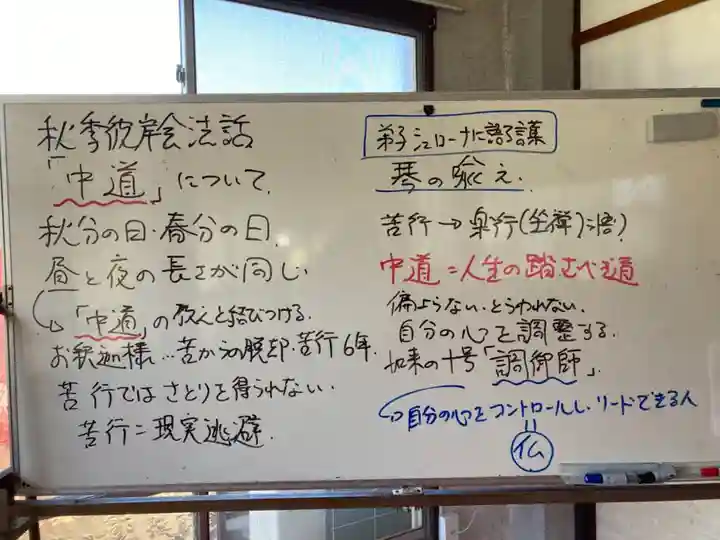 秋季彼岸会法話
「中道」について.
秋分の日・春分の日.
昼と夜の長さが同じ.
「中道」の教えと結びつける.
お釈迦様…苦からの脱却.苦行6年.
苦行ではさとりを得られない.
苦行=現実逃避.
弟子シュローナに語る言葉
琴の喩え.
苦行→楽行(坐禅)
中道=人生の踏むべき道
偏よらない.とらわれない.
自分の心を調整する.
如来の十号「調御師」.
自分の心をコントロールし.リードできる人
=
仏